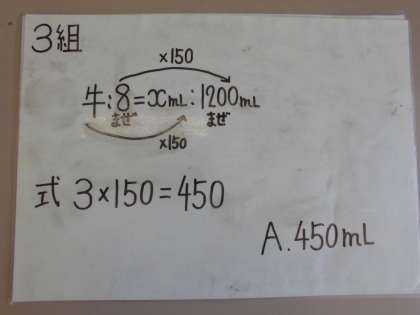 3組
×150
牛:8=xmL:1200mL
まぜ まぜ
×150
式 3×150=450
A.450mL